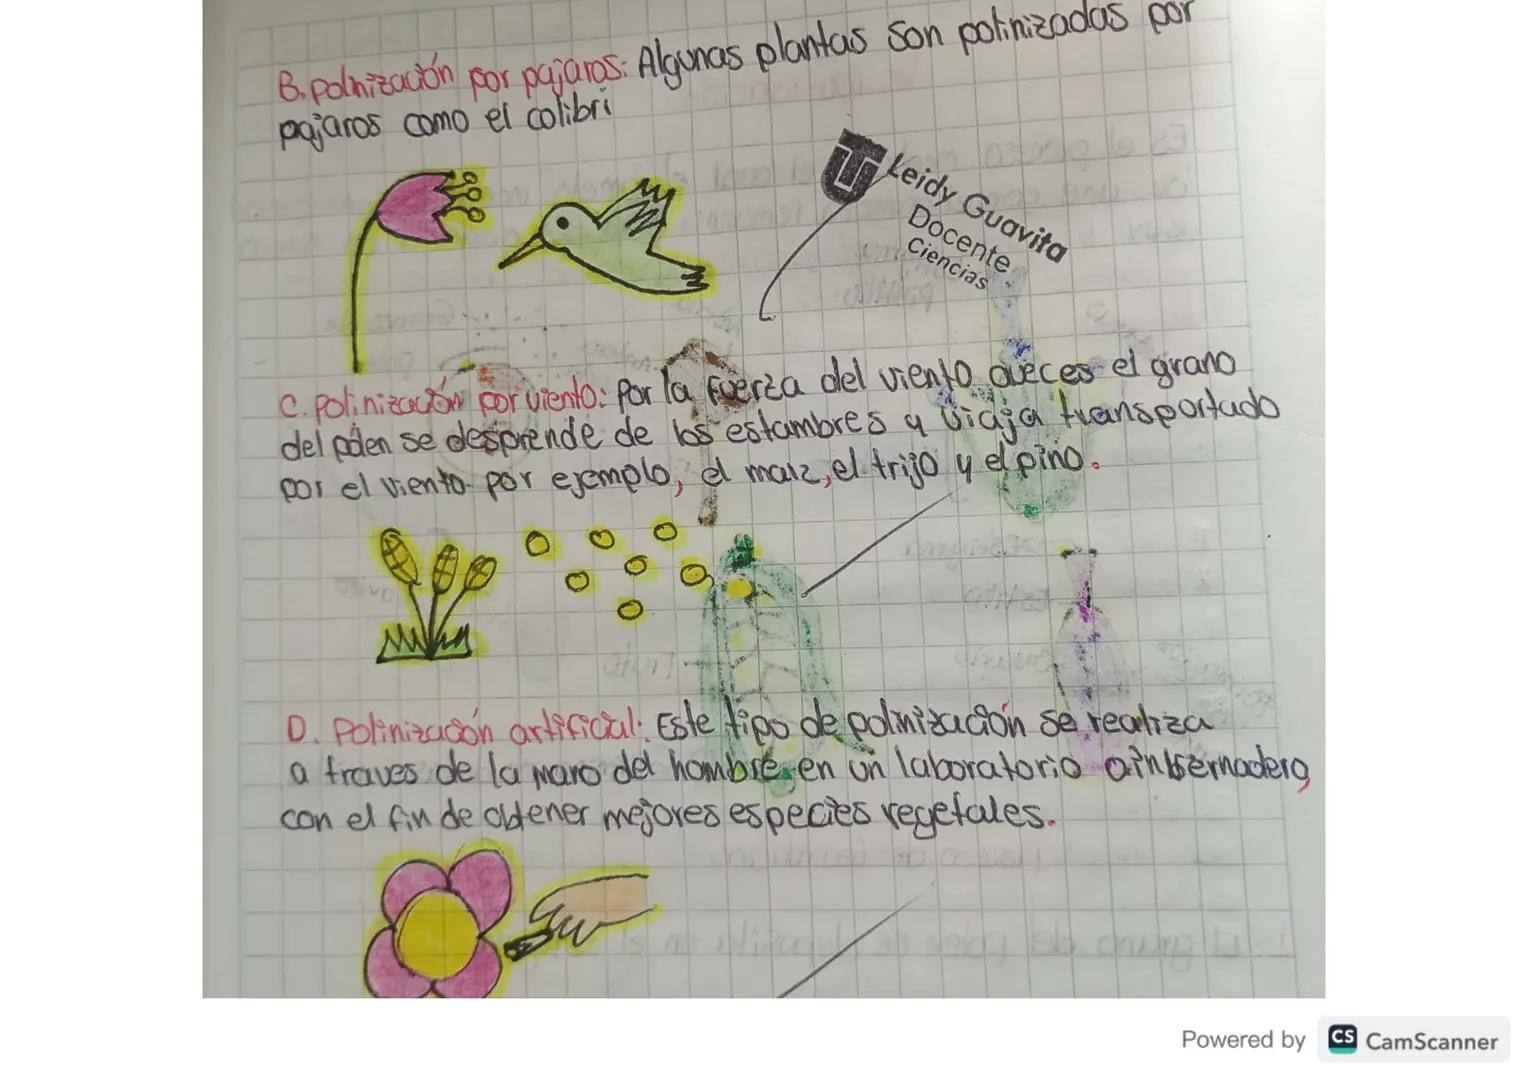 B. polnización por pajaros: Algunas plantas son polinizadas por
pajaros como el colibri
Leidy Guavita
Docente
Ciencias
C. Polinización por viento: Por la fuerza del viento aveces el grano
del polen se desprende de los estambres y viaja transportado
por el viento por ejemplo, el maiz, el trijo y el pino.
D. Polinización artificial: Este tipo de polinización se realiza
a traves de la mano del hombre en un laboratorio o inbernadero,
con el fin de obtener mejores especies vegetales.
Powered by CS CamScanner